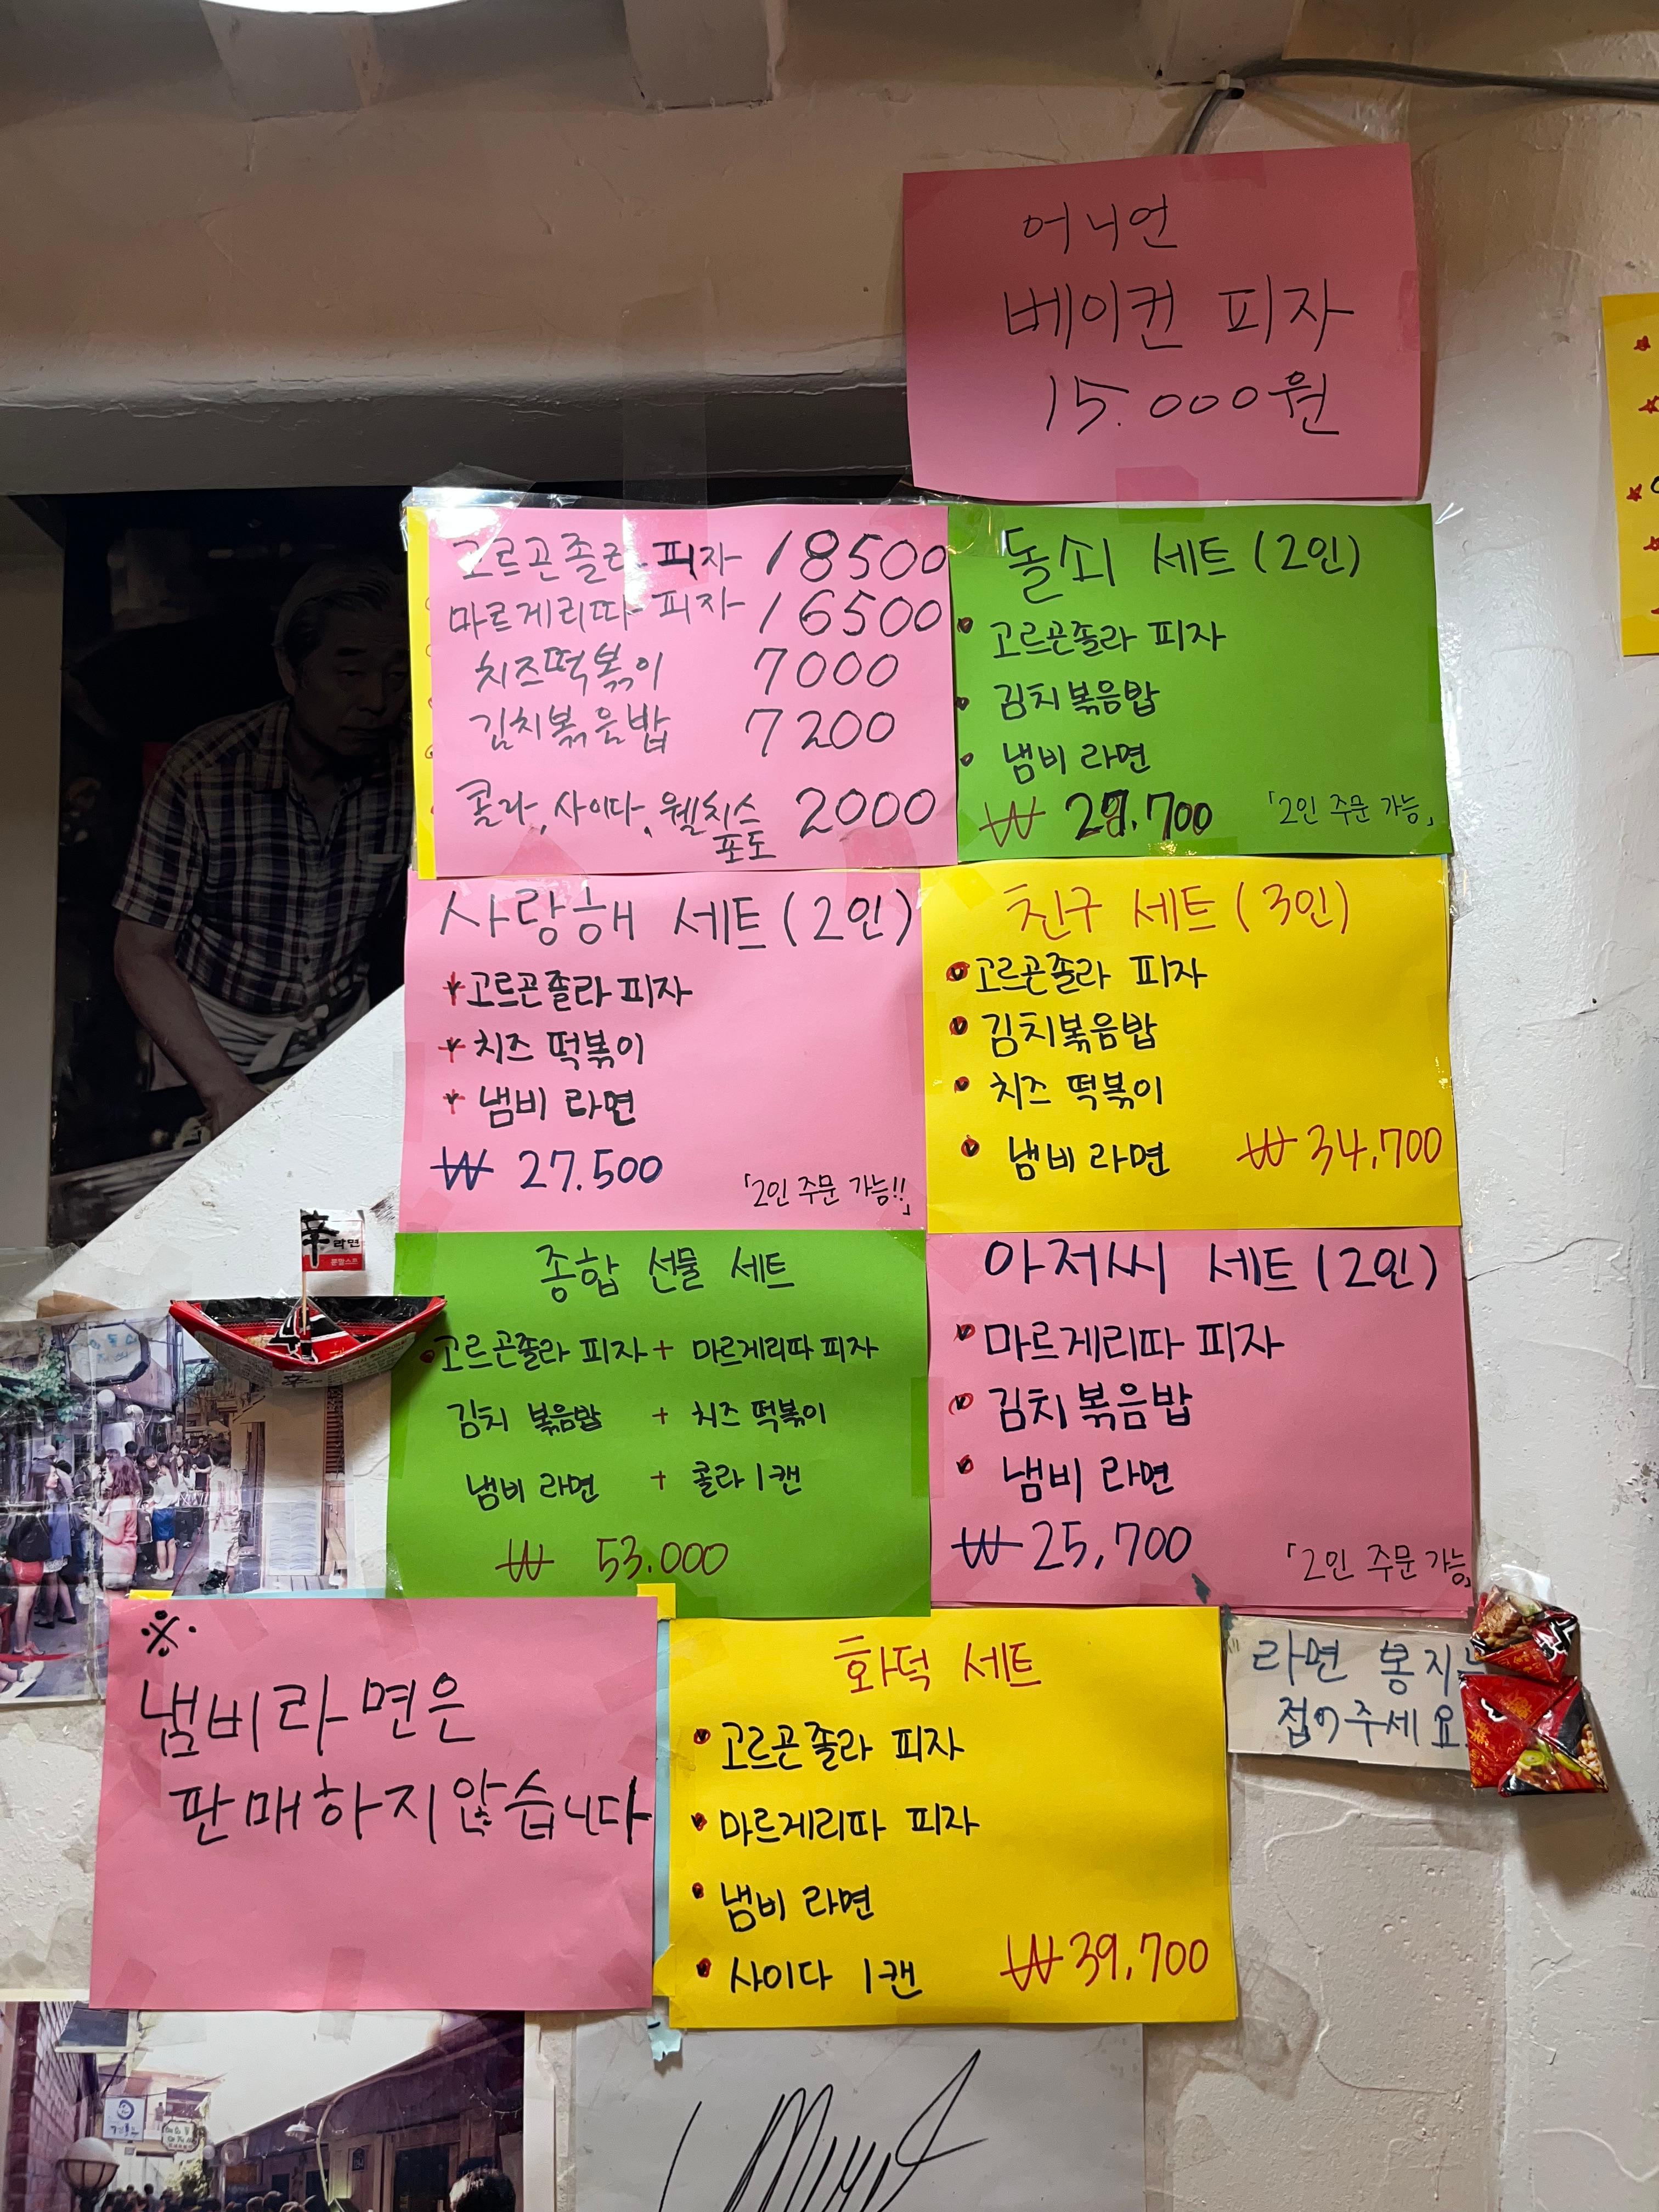 어니언
베이컨 피자
15.000원
고르곤졸라 피자 18500
마르게리따 피자 16500
치즈떡볶이 7000
김치볶음밥 7200
콜라, 사이다, 웰치스 2000
포도
돌쇠 세트 (2인)
고르곤졸라 피자
김치볶음밥
냄비 라면
₩ 27,700 「2인 주문 가능」
사랑해 세트 (2인)
고르곤졸라 피자
치즈 떡볶이
냄비 라면
₩ 27.500 「2인 주문 가능!!」
친구 세트 (3인)
고르곤졸라 피자
김치볶음밥
치즈 떡볶이
냄비 라면 ₩ 34,700
종합 선물 세트
고르곤졸라 피자 + 마르게리따 피자
김치 볶음밥 + 치즈 떡볶이
냄비 라면 + 콜라 1캔
₩ 53.000
아저씨 세트 (2인)
마르게리따 피자
김치볶음밥
냄비 라면
₩ 25,700 「2인 주문 가능」
辛라면
※.
냄비라면은
판매하지않습니다
화덕 세트
고르곤졸라 피자
마르게리따 피자
냄비 라면
사이다 1캔 ₩39,700
라면 봉지
접어주세요